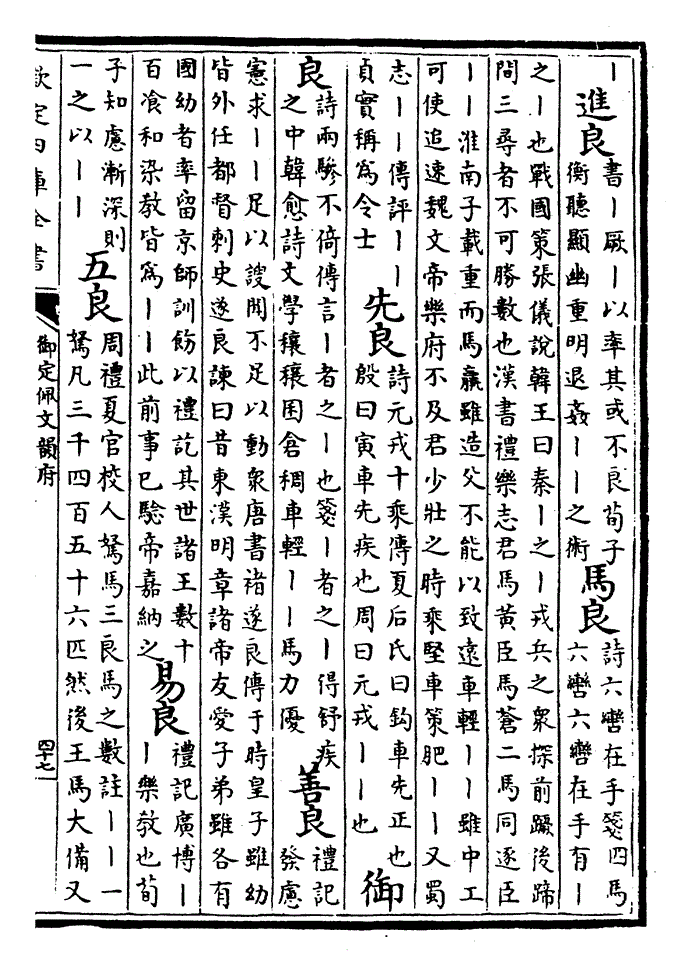 丨
進良
書丨厥丨以率其或不良荀子
衡聽顯幽重明退姦丨丨之術
馬良
詩六轡在手箋四馬
六轡六轡在手有丨
之丨也戰國策張儀說韓王曰秦丨之丨戎兵之衆探前蹶後蹄
間三尋者不可勝數也漢書禮樂志君馬黃臣馬蒼二馬同逐臣
丨丨淮南子載重而馬羸雖造父不能以致遠車輕丨丨雖中工
可使追速魏文帝樂府不及君少壯之時乘堅車策肥丨丨又蜀
志丨丨傳評丨丨
貞實稱爲令士
先良
詩元戎十乘傳夏后氏曰鈎車先正也
殷曰寅車先疾也周曰元戎丨丨也
御
良
詩兩驂不倚傳言丨者之丨也箋丨者之丨得舒疾
之中韓愈詩文學穰穰囷倉稠車輕丨丨馬力優
善良
禮記
發慮
憲求丨丨足以謏聞不足以動衆唐書褚遂良傳于時皇子雖幼
皆外任都督刺史遂良諫曰昔東漢明章諸帝友愛子弟雖各有
國幼者率留京師訓飭以禮訖其世諸王數十
百飡和染教皆爲丨丨此前事已驗帝嘉納之
易良
禮記廣博丨
丨樂教也荀
子知慮漸深則
一之以丨丨
五良
周禮夏官校人駑馬三良馬之數註丨丨一
駑凡三千四百五十六匹然後王馬大備又
欽定四庫全書
御定佩文韻府
四十七